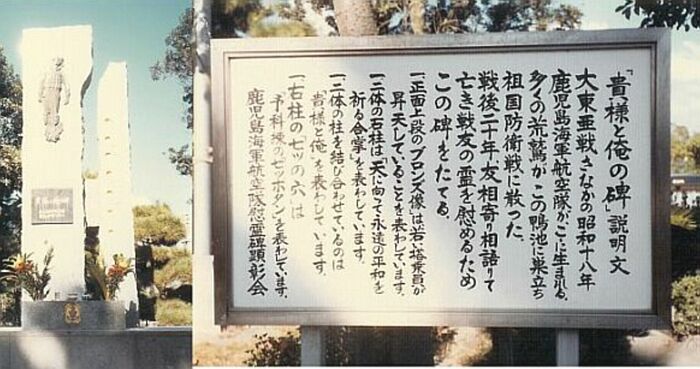 「貴様と俺の碑」説明文
大東亜戦、さなかの昭和十八年
鹿児島海軍航空隊が、こゝに生まれる、
多くの荒鷲が、この鴨池に巣立ち
祖国防衛戦に散った、
戦後二十年、友相寄り相語りて
亡き戦友の霊を慰めるため
この碑をたてる。
一、正面上段のブロンズ像は若い搭乗員が
昇天していることを表わしています。
一、二体の石柱は「天に向って永遠の平和を
祈る合掌」を表わしています。
一、二体の柱を結び合わせているのは
「貴様と俺」を表わしています。
一、右柱の七ッの穴は
「予科練の七ッボタン」を表わしています。
鹿児島海軍航空隊慰霊碑顕彰会